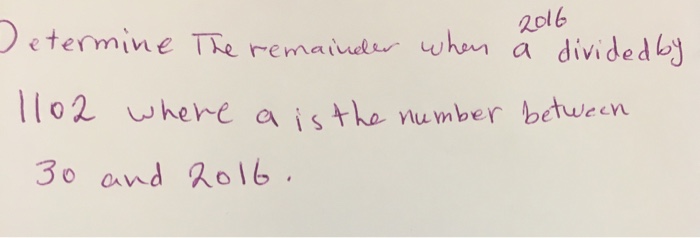 Determine The remainder when a^2016 divided by
1102 where a is the number between
30 and 2016.